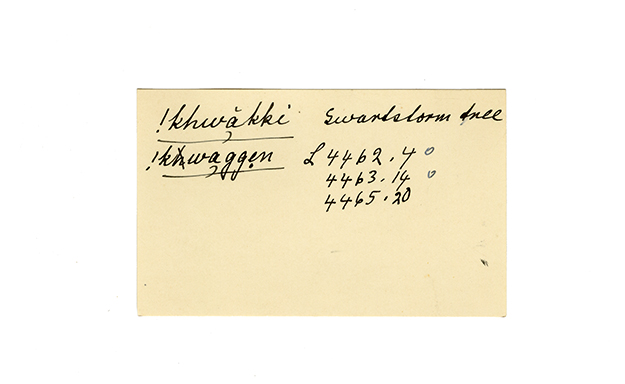 !khwăkki Swartstorm tree
!kẖwaggen L 4462.7 o
4463.14 o
4465.20